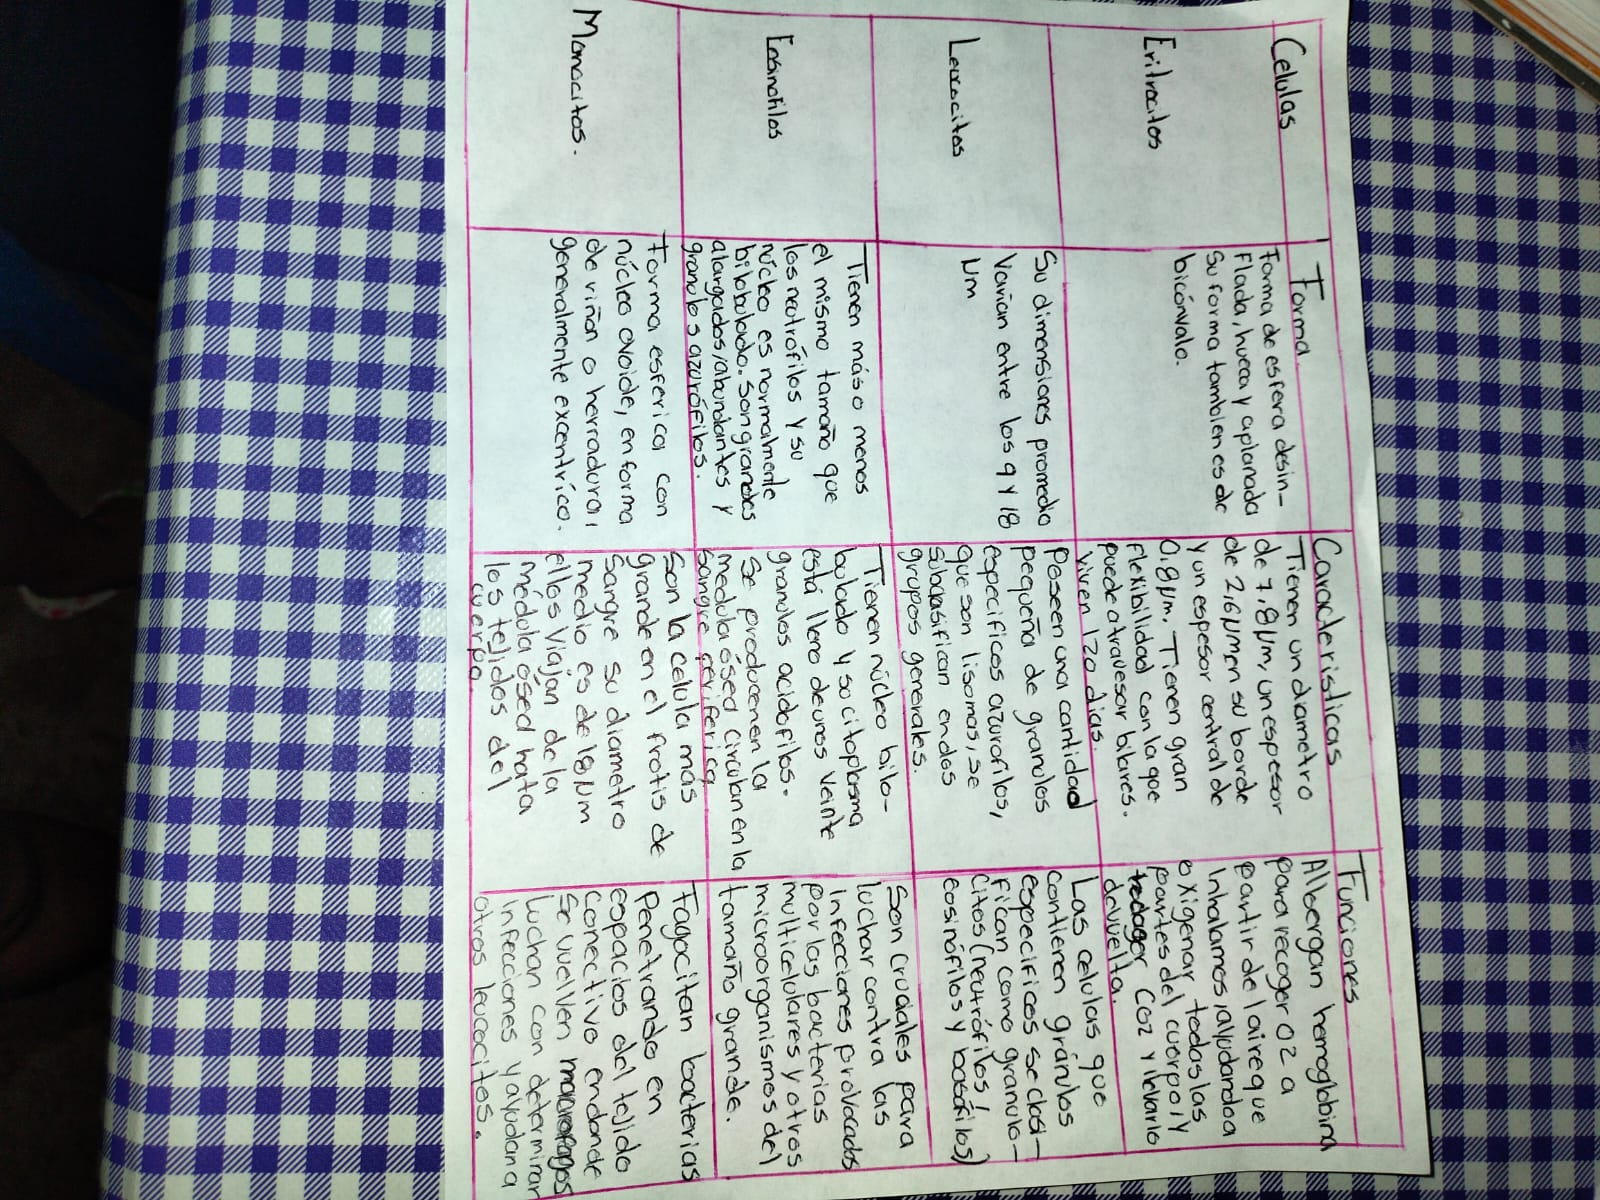 Celulas
Forma
Caracteristicas
Funciones
Eritrocitos
Forma de esfera desin-
flada, hueca y aplanada
Su forma tambien es de
bicónvalo.
Tienen un diametro
de 7.8 µm, un espesor
de 2,6 µm en su borde
y un espesor central de
0,8 µm. Tienen gran
flexibilidad con la que
puede atravesar bilaires.
viven 120 dias.
Albergan hemoglobina
para recoger O2 a
partir del aire que
inhalamos, ayudando a
oxigenar todas las
partes del cuerpo, y
CO2 y llevarlo
devuelta.
Leucocitos
Su dimensiones promedio
Varian entre los 9 y 18
µm
Poseen una cantidad
pequeña de granulos
especificos azurofilos,
que son lisomas, se
subclasifican en dos
grupos generales.
Las celulas que
contienen gránulos
especificos se clasi-
fican como granulo-
citos (neutrófilos,
eosinófilos y basófilos)
Eosinofilos
Tienen más o menos
el mismo tamaño que
los neutrófilos y su
núcleo es normalmente
bilobulado. Son grandes
alargados, abundantes y
granulos azurófilos.
Tienen núcleo bilo-
bulado y su citoplasma
está lleno de unos veinte
granulos acidofilos.
Se producen en la
medula ósea, circulan en la
sangre periferica
Son cruciales para
luchar contra las
infecciones provocadas
por las bacterias
multicelulares y otros
microorganismos de
tamaño grande.
Monocitos.
Forma esferica con
núcleo ovoide, en forma
de riñon o herradura,
generalmente excentrico.
Son la celula más
grande en el frotis de
sangre su diametro
medio es de 18 µm
ellos viajan de la
médula ósea hata
los tejidos del
cuerpo.
Fagocitan bacterias
Penetrando en
espacios del tejido
conectivo en donde
se vuelven macrofagos
Luchan con determinar
infecciones y ayudan a
otros leucocitos.